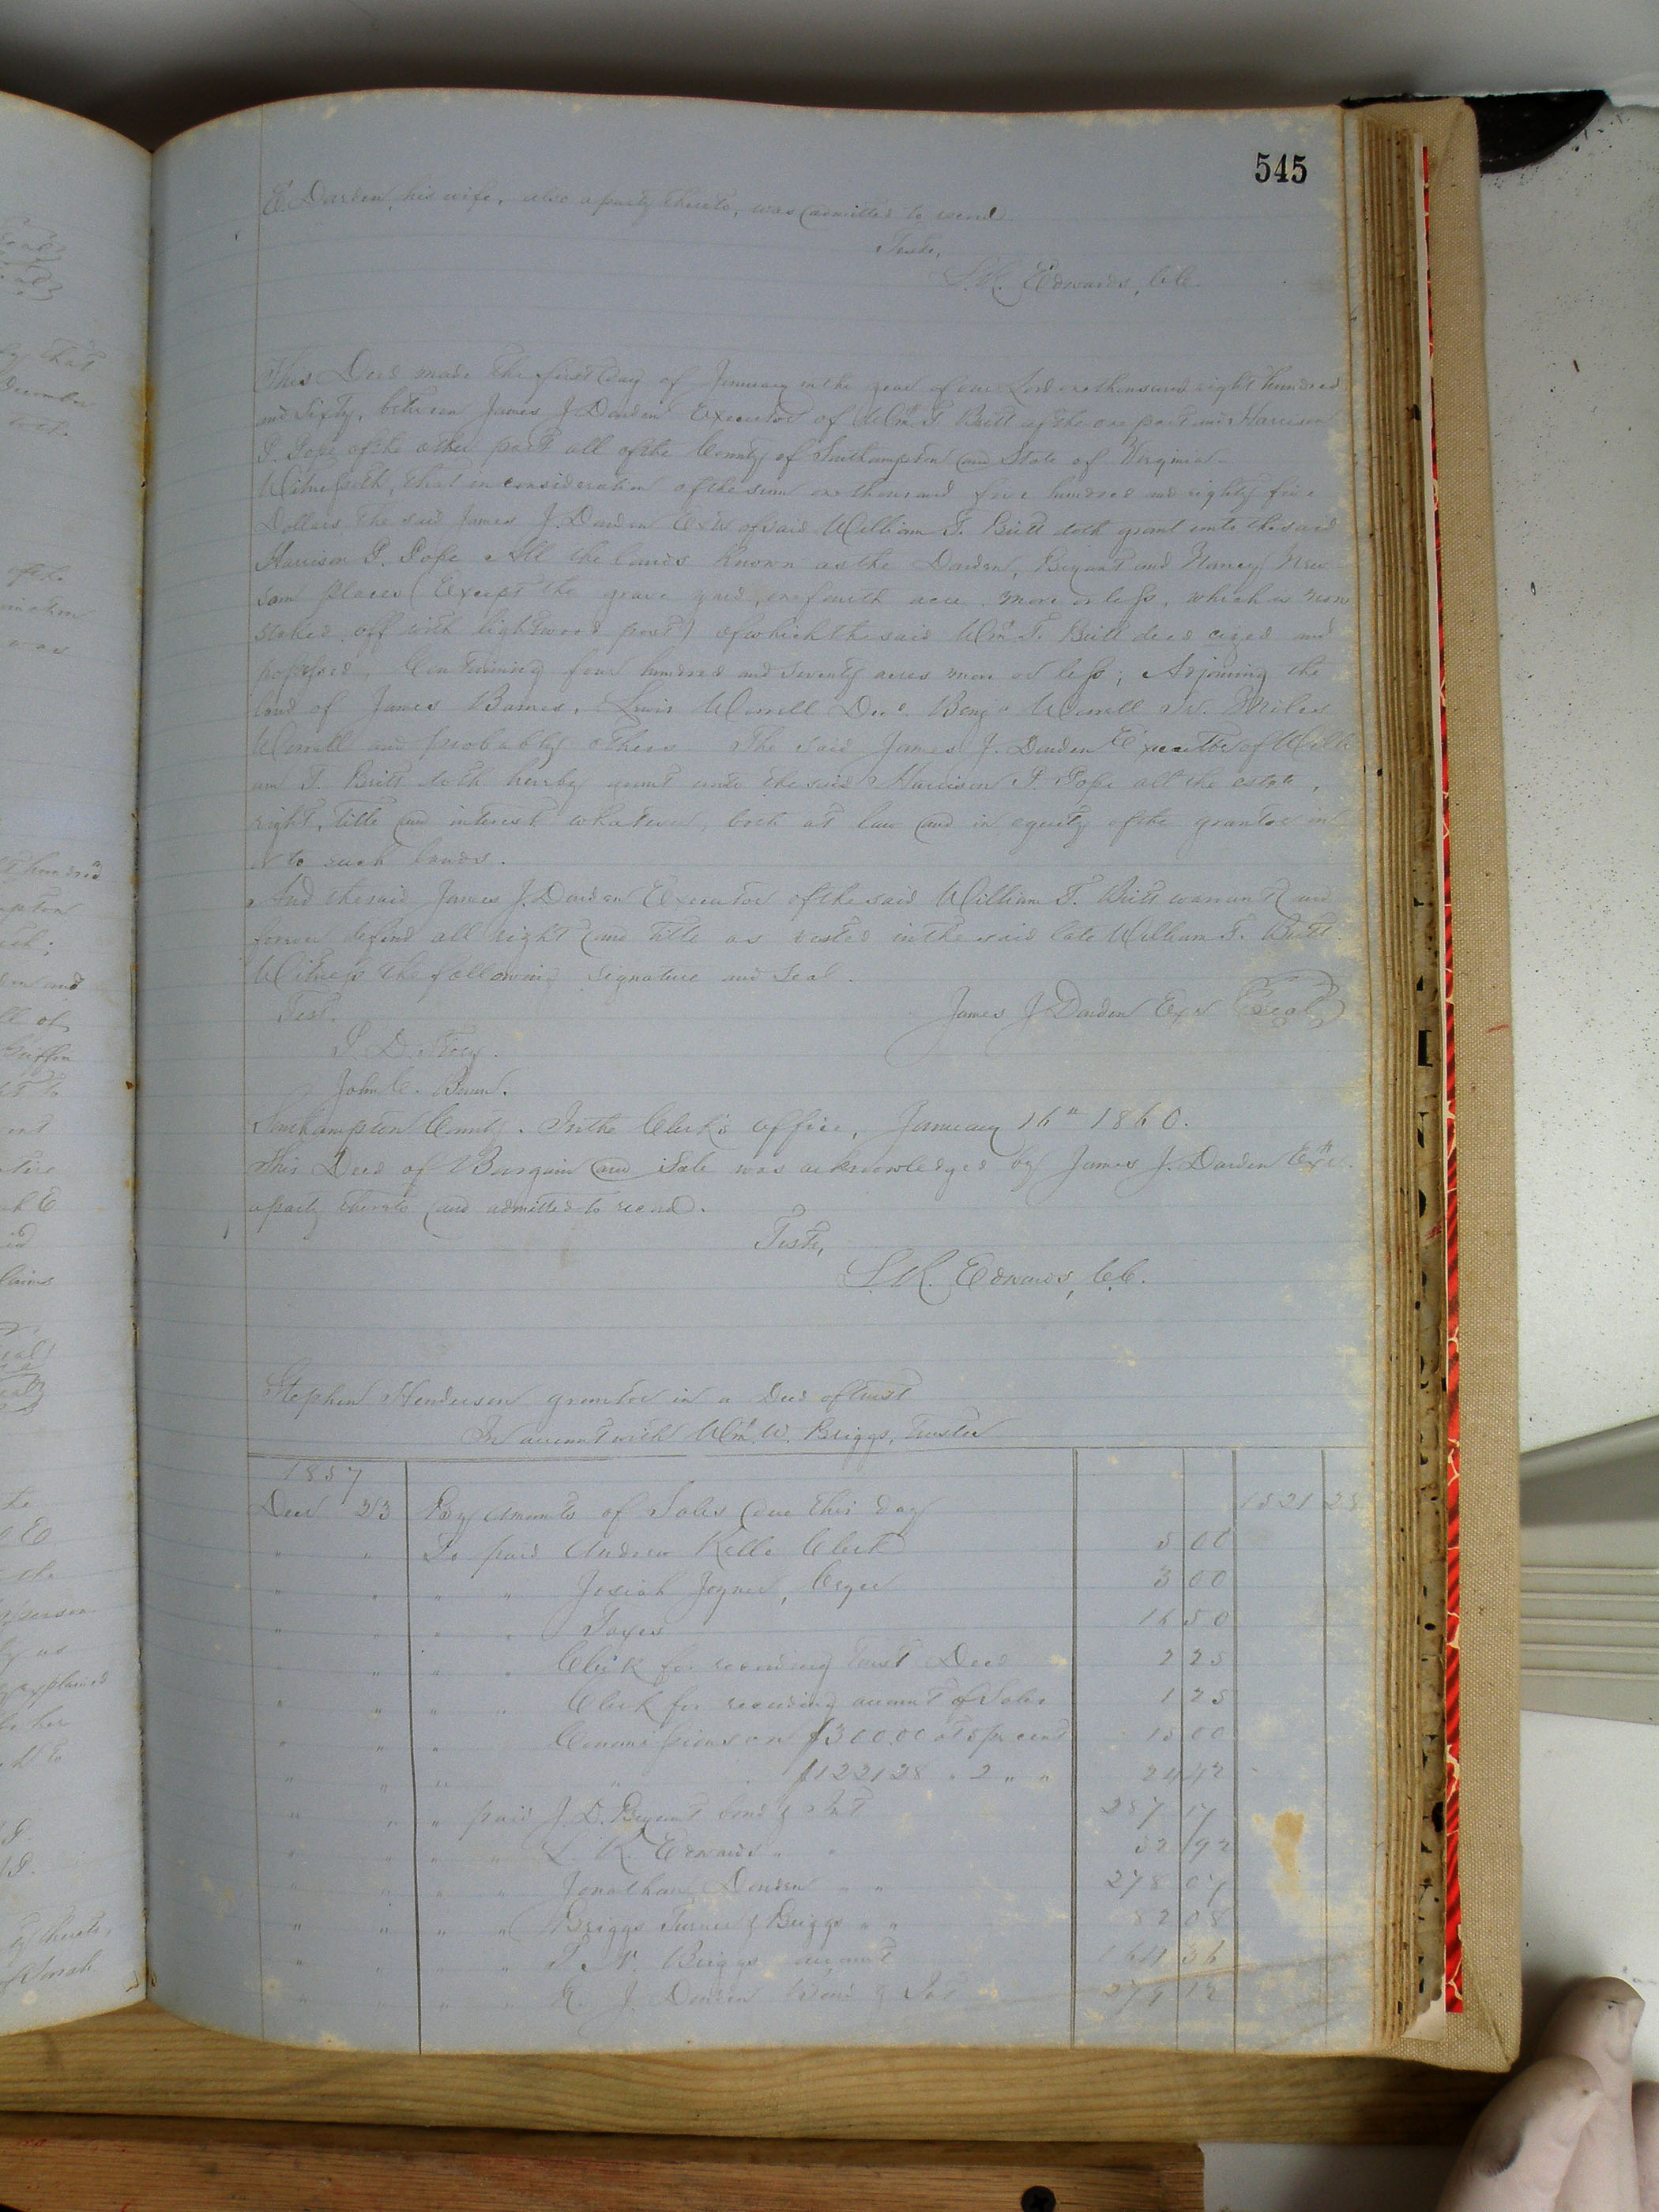 545
E. Darden, his wife, also a party thereto, was admitted to record
Teste,
L. R. Edwards, C.C.
This Deed made the first day of January in the year of our Lord one thousand eight hundred
and Sixty, between James J. Darden Executor of Wm. T. Britt of the one part and Harrison
P. Pope of the other part all of the County of Southampton and State of Virginia
Witnesseth, that in consideration of the sum one thousand five hundred and eighty five
Dollars the said James J. Darden Exr of said William T. Britt doth grant unto the said
Harrison P. Pope All the lands known as the Darden, Bryant and Nancy New
som places (Except the grave yard, one fourth acre more or less, which is now
staked off with lightwood post) of which the said Wm. T. Britt died cized and
possessed, Containing four hundred and seventy acres more or less; Adjoining the
land of James Barnes, Lewis Worrell Decd. Benja Worrell Miles
Worrell and probably others. The said James J. Darden Executor of Willi
am T. Britt doth hereby grant unto the said Harrison P. Pope all the estate,
right, title and interest whatever, both at law and in equity of the grantor in
or to such lands.
And the said James J. Darden Executor of the said William T. Britt warrant and
forever defend all right and title as vested in the said late William T. Britt
Witness the following signature and seal.
James J Darden Exr Seal
Test.
John C.
Southampton County. In the Clerk's office, January 16th 1860.
This Deed of Bargain and Sale was acknowledged by James J. Darden Exr.
a party thereto and admitted to record.
Teste,
L. R. Edwards, C.C.
Stephen Henderson grantor in a Deed of trust
In account with Wm. W. Briggs, Trustee
1857
Decr 23 By amounts of Sales due this day 1521 28
" " To paid Andrew Kello Clerk 5 00
" " " " Josiah Joyner, Cryer 3 00
" " " " Taxes 16 50
" " " " Clerk for recording trust Deed 2 25
" " " " Clerk for recording account of Sales 1 25
" " " Commissions on $300.00 at 5 pr cent 15 00
" " " " $1221 28 " 2 " " 24 42
" " " paid J. D. Bryant bond & Int 257 17
" " " " L. R. Edwards " " 52 92
" " " " Jonathan Darden " " 278 07
" " " " Briggs Turner & Briggs " " 82 08
" " " " Briggs account 164 36
" " " " J. Darden Bond & Int 279 12